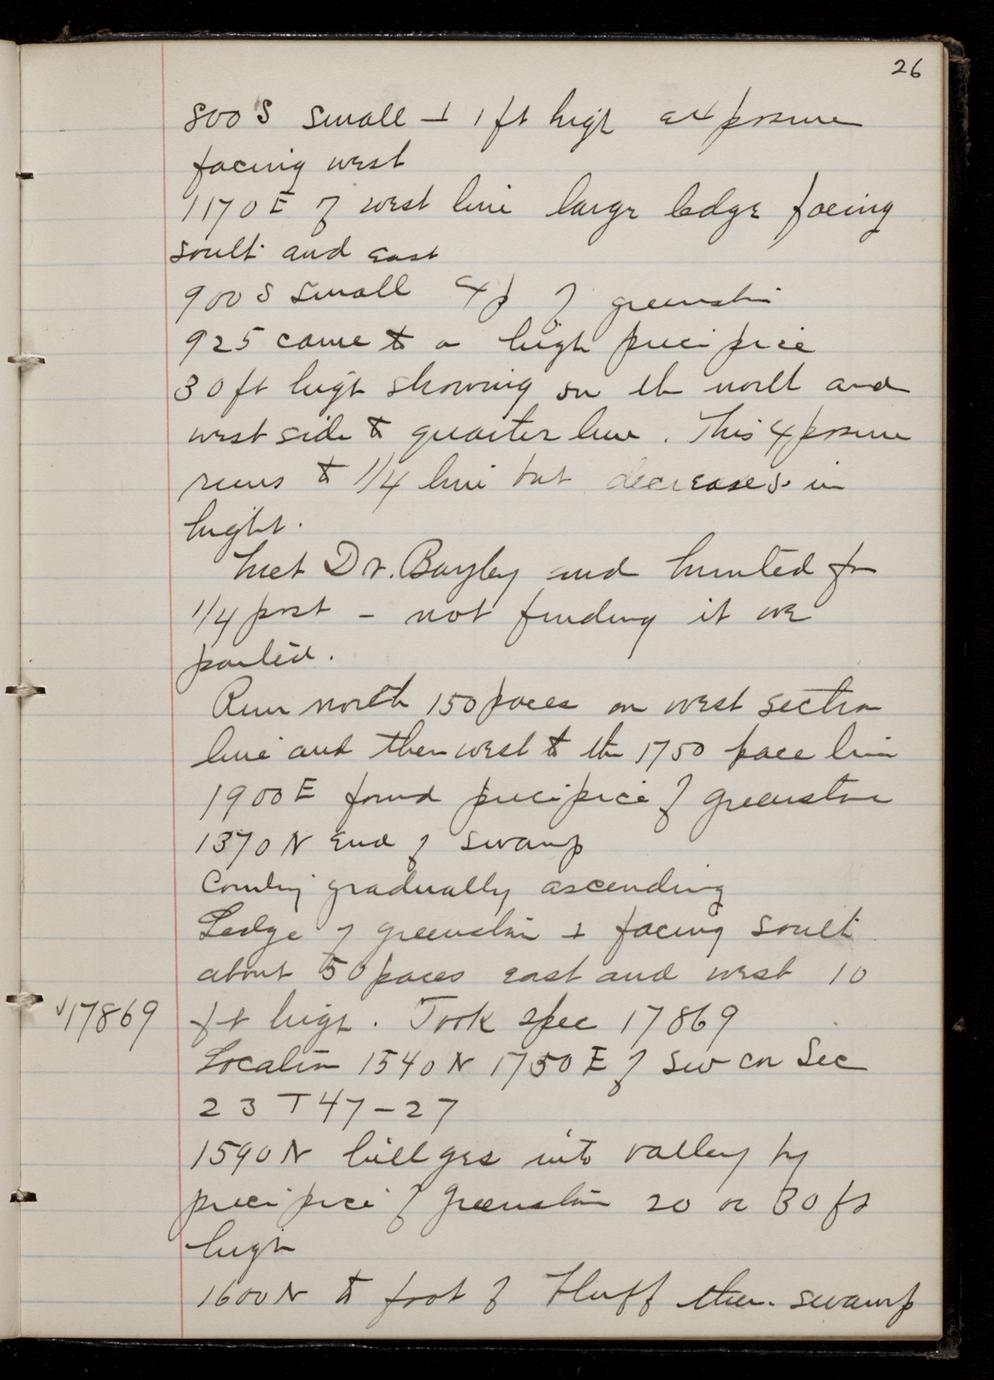 26
800 S small ⊥ 1 ft high exposure
facing west
1170 E of west line large ledge facing
south and east
900 S small exp of greenstone
925 came to a high precipice
30 ft high showing on the north and
west side to quarter line. This exposure
runs to 1/4 line but decreases in
hight.
Met Dr. Bayley and hunted for
1/4 post - not finding it we
parted.
Run north 150 paces on west section
line and then west to the 1750 pace line
1900 E found precipice of greenstone
1370 N End of swamp
gradually ascending
Ledge of greenstone ⊥ facing south
about 50 paces east and west 10
√17869 ft high. Took spec 17869
Location 1540 N 1750 E of SW cor Sec
23 T 47-27
1590 N hill goes into valley by
precipice of greenstone 20 or 30 ft
high
1600 N to foot of bluff then swamp